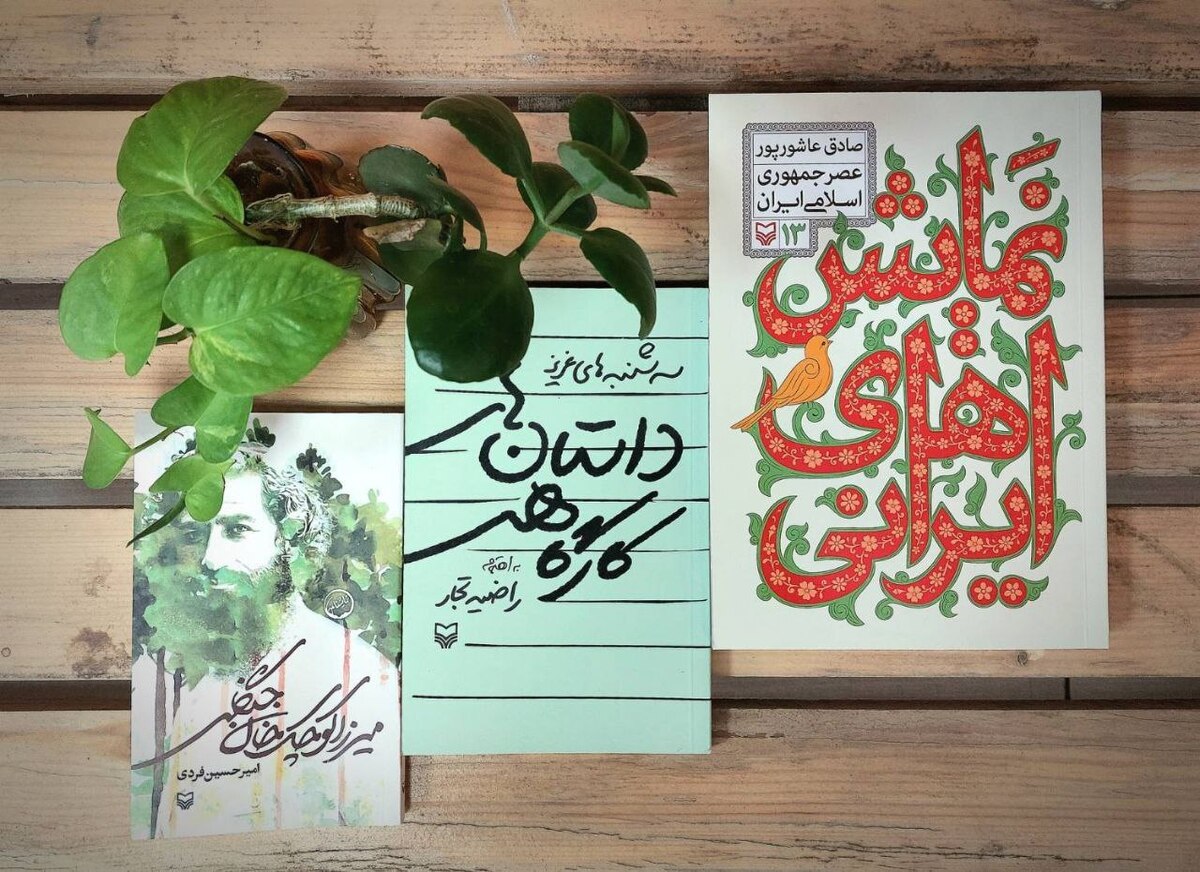 صادق عاشورپور
عصر جمهوری
اسلامی ایران
۱۳
نمایش
های
ایرانی
سه‌شنبه‌های عزیز
داستان‌های
کارگاهی
به اهتمام
راضیه تجار
میرزا کوچک خان جنگلی
امیرحسین فردی